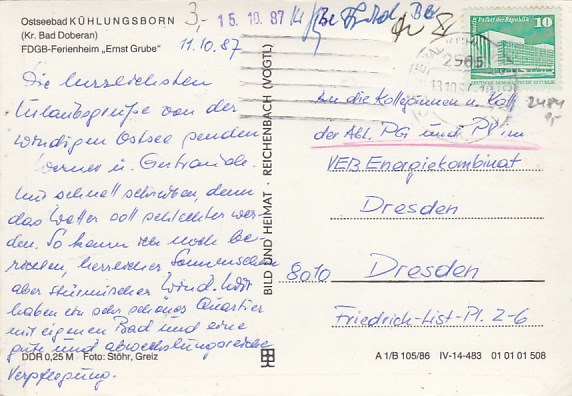 Ostseebad KÜHLUNGSBORN
(Kr. Bad Doberan)
FDGB-Ferienheim „Ernst Grube"
3,- 15. 10. 87
11.10.87
Die herzlichsten
Urlaubsgrüße von der
windigen Ostsee senden
Werner u. Gertraude.
Muß schnell schreiben, denn
das Wetter soll schlechter wer-
den. So kann ich noch be-
richten, herrlicher Sonnenschein
aber stürmischer Wind. Wir
haben ein sehr schönes Quartier
mit eigenen Bad und eine
gute und abwechslungsreiche
Verpflegung.
DDR 0,25 M Foto: Stöhr, Greiz
BILD UND HEIMAT · REICHENBACH (VOGTL)
Palast der Republik 10
2565
13.10.87
2484
9,-
An die Kolleginnen u. Koll.
der Abt. PG und PP im
VEB Energiekombinat
Dresden
8010 Dresden
Friedrich-List-Pl. 2-6
A 1/B 105/86 IV-14-483 01 01 01 508